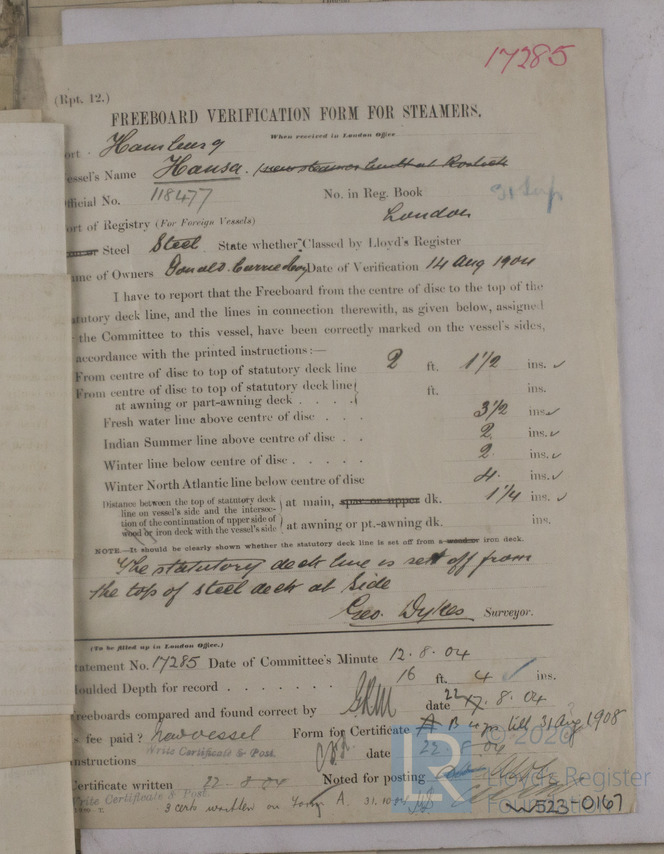 17285
(Rpt. 12.)
FREEBOARD VERIFICATION FORM FOR STEAMERS.
When received in London Office
ort Hamburg
essel's Name Hansa. (new steamer built at Rostock
fficial No. 118477 No. in Reg. Book
ort of Registry (For Foreign Vessels) London
or Steel Steel. State whether Classed by Lloyd's Register
me of Owners Donald Currie Date of Verification 14 Aug 1904
I have to report that the Freeboard from the centre of disc to the top of the
atutory deck line, and the lines in connection therewith, as given below, assigned
the Committee to this vessel, have been correctly marked on the vessel's sides,
accordance with the printed instructions:—
From centre of disc to top of statutory deck line 2 ft. 1 1/2 ins. ✓
From centre of disc to top of statutory deck line
at awning or part-awning deck . . . . ft. ins.
Fresh water line above centre of disc . . . 3 1/2 ins. ✓
Indian Summer line above centre of disc . . 2 ins. ✓
Winter line below centre of disc . . . . . 2 ins. ✓
Winter North Atlantic line below centre of disc 4 ins. ✓
Distance between the top of statutory deck
line on vessel's side and the intersec-
tion of the continuation of upper side of
wood or iron deck with the vessel's side
at main, spar or upper dk. 1 1/4 ins. ✓
at awning or pt.-awning dk. ins.
NOTE.—It should be clearly shown whether the statutory deck line is set off from a wood or iron deck.
The statutory deck line is set off from
the top of steel deck at side
Geo. Dykes Surveyor.
(To be filled up in London Office.)
tatement No. 17285 Date of Committee's Minute 12.8.04
oulded Depth for record . . . . . . . 16 ft. 4 ✓ ins.
reeboards compared and found correct by date 22.8.04
s fee paid? New vessel Form for Certificate A B till 31 Aug 1908
nstructions Write Certificate & Post date 22.8.04
ertificate written 22.8.04 Noted for posting
Write Certificate & Post.
3 certs written on A. 31.10.04
LR © 2020
Lloyd's Register
Foundation
W523-0167